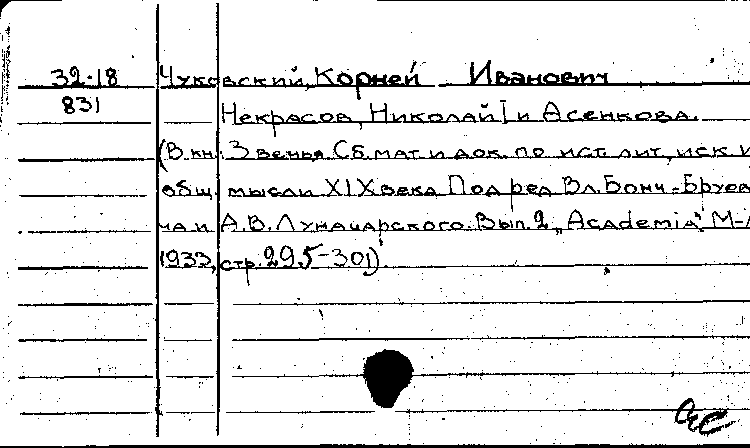 32-18 Чуковский, Корней Иванович
831
Некрасов, Николай I и Асенкова.
(В кн. Звенья. Сб. мат. и док. по ист. лит., иск. и
общ. мысли XIX века. Под ред. Вл. Бонч-Бруев
ча и А.В. Луначарского. Вып. 2 "Academia". М-Л
1933, стр. 295-301).